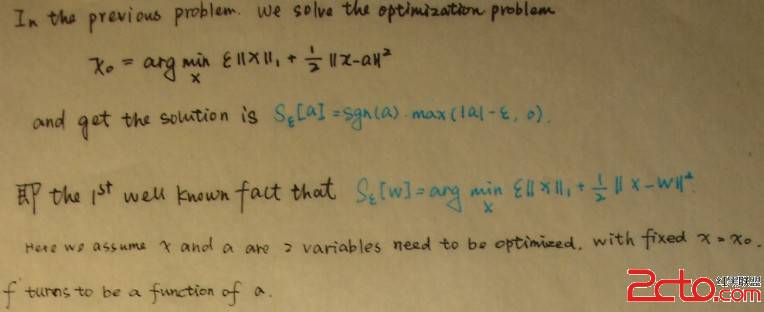 In the previous problem. We solve the optimization problem
x₀ = arg min_x ε||x||₁ + ½ ||x-a||²
and get the solution is S_ε[a] = sgn(a)·max(|a|-ε, 0).
即 the 1st well known fact that S_ε[w] = arg min_x ε||x||₁ + ½ ||x-w||².
Here we assume x and a are 2 variables need to be optimized, with fixed x = x₀.
f turns to be a function of a.
2cto.com